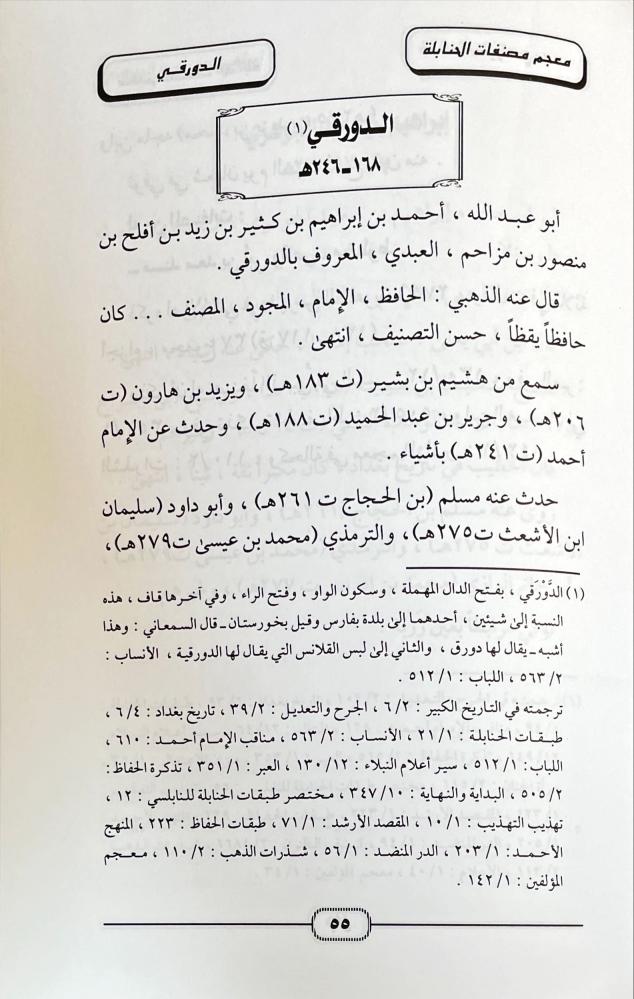 معجم مصنفات الحنابلة
الدورقي
الدورقي (١)
١٦٨ـ٢٤٦هـ
أبو عبد الله ، أحمد بن إبراهيم بن كثير بن زيد بن أفلح بن
منصور بن مزاحم ، العبدي ، المعروف بالدورقي .
قال عنه الذهبي : الحافظ ، الإمام ، المجود ، المصنف . . . كان
حافظاً يقظاً ، حسن التصنيف ، انتهىٰ .
سمع من هشيم بن بشير (ت ١٨٣هـ) ، ويزيد بن هارون (ت
٢٠٦هـ) ، وجرير بن عبد الحميد (ت ١٨٨هـ) ، وحدث عن الإمام
أحمد (ت ٢٤١هـ) بأشياء .
حدث عنه مسلم (بن الحجاج ت ٢٦١هـ) ، وأبو داود (سليمان
ابن الأشعث ت٢٧٥هـ)، والترمذي (محمد بن عيسىٰ ت٢٧٩هـ)،
(١) الدَّوْرَقي ، بفتح الدال المهملة ، وسكون الواو ، وفتح الراء ، وفي آخرها قاف ، هذه
النسبة إلىٰ شيئين ، أحدهما إلىٰ بلدة بفارس وقيل بخورستان ـ قال السمعاني : وهذا
أشبه ـ يقال لها دورق ، والثاني إلىٰ لبس القلانس التي يقال لها الدورقية ، الأنساب :
٢/ ٥٦٣ ، اللباب : ١/ ٥١٢ .
ترجمته في التاريخ الكبير : ٢/ ٦ ، الجرح والتعديل : ٢/ ٣٩ ، تاريخ بغداد : ٤/ ٦ ،
طبقات الحنابلة : ١/ ٢١ ، الأنساب : ٢/ ٥٦٣ ، مناقب الإمام أحمد : ٦١٠ ،
اللباب : ١/ ٥١٢ ، سير أعلام النبلاء : ١٢/ ١٣٠ ، العبر : ١/ ٣٥١ ، تذكرة الحفاظ :
٢/ ٥٠٥ ، البداية والنهاية : ١٠/ ٣٤٧ ، مختصر طبقات الحنابلة للنابلسي : ١٢ ،
تهذيب التهذيب : ١/ ١٠ ، المقصد الأرشد : ١/ ٧١ ، طبقات الحفاظ : ٢٢٣ ، المنهج
الأحمد : ١/ ٢٠٣ ، الدر المنضد : ١/ ٥٦ ، شذرات الذهب : ٢/ ١١٠ ، معجم
المؤلفين : ١/ ١٤٢ .
٥٥